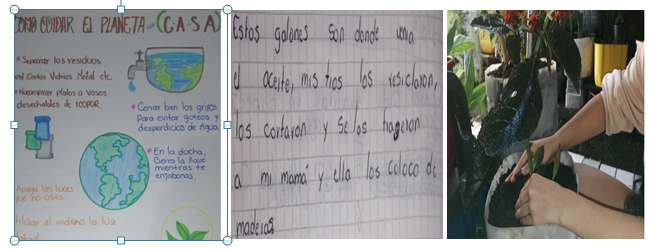 COMO CUIDAR EL PLANETA (C·A·S·A)
Separar los residuos
Cartón Vidrios Metal etc.
platos o vasos
desechables de ICOPOR.
Cerrar bien los grifos
Para evitar goteos y
desperdicios de Agua.
En la ducha,
Cierra la llave
mientras te
enjabonas.
Apaga las luces
que no uses.
utilizar al máximo la luz
Estos galones son donde venia
el aceite, mis tios los resiclaron,
los cortaron y se los trageron
a mi mamá y ella los coloco de
maderas